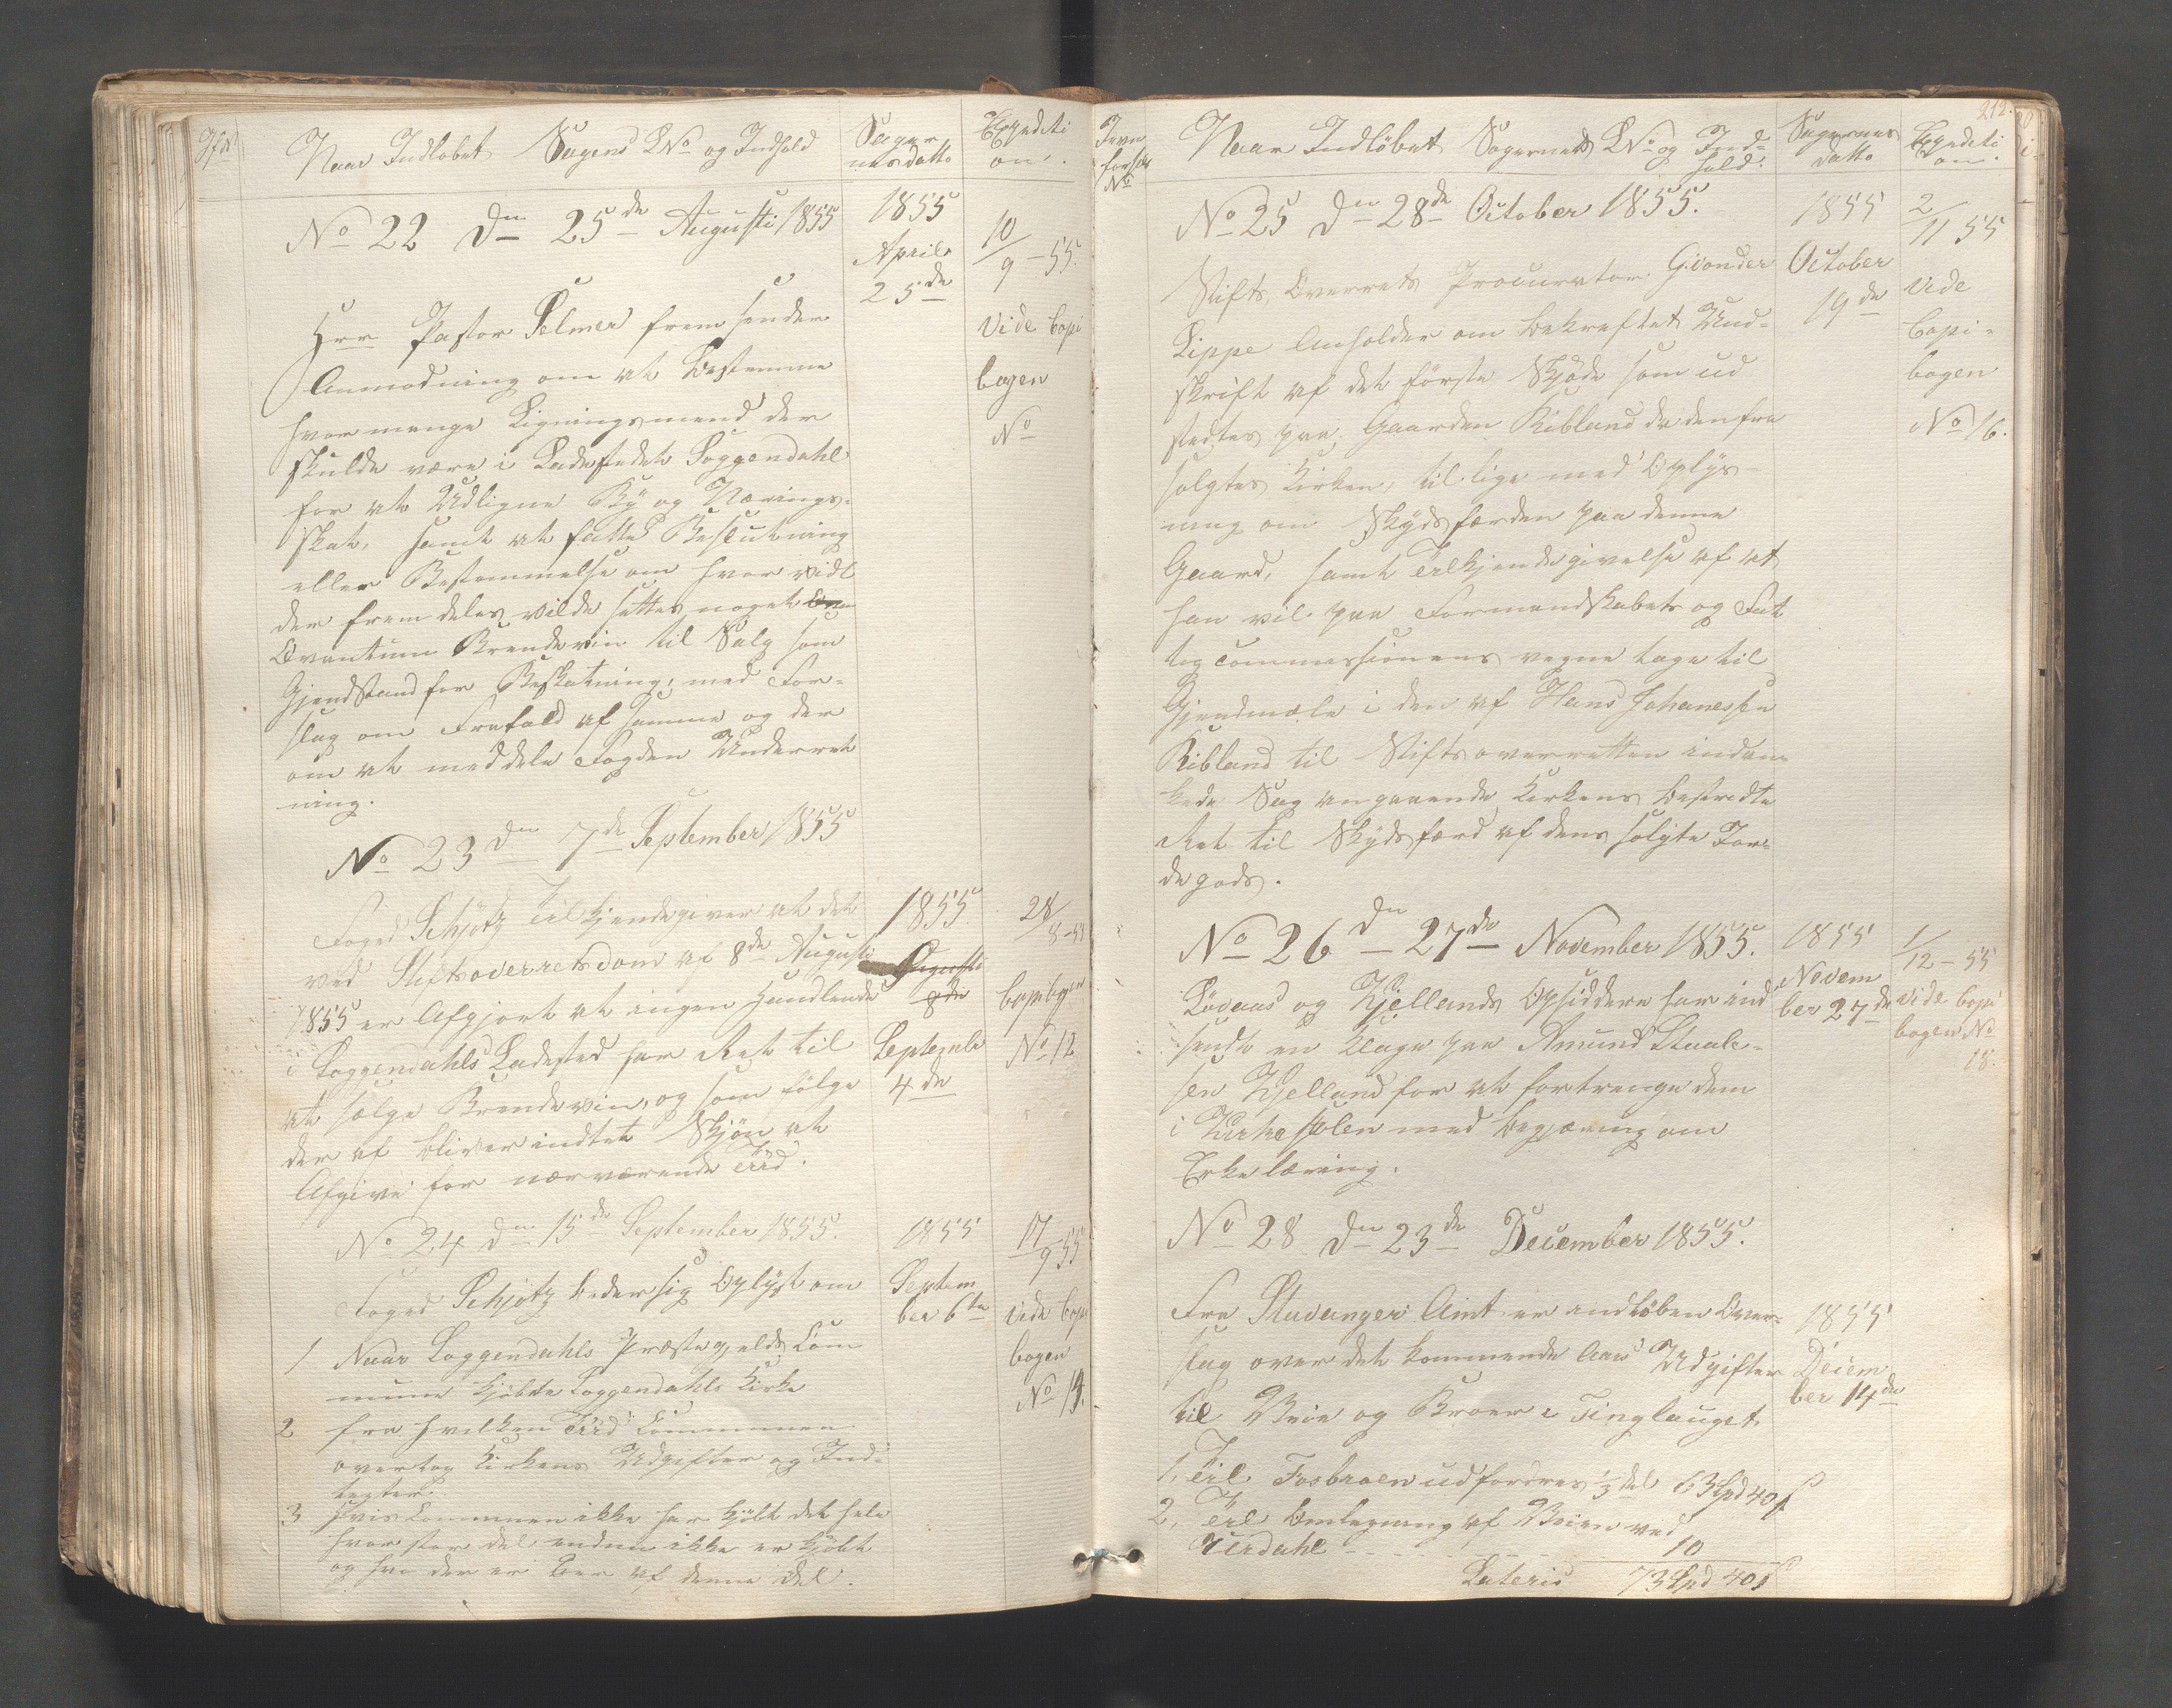 Naar Indløbet Sagens LNo og Indhold
Sager
nes datto
Expediti
on.
No 22 Dn 25de Augusti 1855
1855
April
25de
10/9 - 55.
Vide Copi
bogen
No
Hrr Pastor Selmer fremsender
Anmodning om at bestemme
hvor mange Ligningsmend der
skulde være i Ladestedet Soggendahl
for at Udligne By og Nærings-
skat, samt at fatte Beslutning
eller Bestemmelse om hvor vidt
der fremdeles vilde settes noget
Qvantum Brendevin til Salg som
Gjendstand for Beskatning, med For-
slag om Frafald af samme og der
om at meddele Fogden Underret
ning.
No 23 Dn 7de September 1855
Foged Schjøtz Tilkjendegiver at det
ved Stiftsoverretsdom af 8de Augusti
1855 er Afgjort at ingen Handlende
i Soggendahls Ladested har Ret til
at sælge Brendevin, og som følge
der af bliver indtet Skjøn at
Afgive for nærværende Tiid.
1855
Augusti
8de
Septembr
4de
28/8-55
Copibogen
No 12
No 24 Dn 15de September 1855.
1855
Septem
ber 6te
17/9 55
vide Copi
bogen
No 14.
Foged Schjøtz beder sig Oplyst om
1 Naar Soggendahls Præstegjelds Com
mune kjøbte Soggendahls Kirke
2 fra hvilken Tiid Communen
overtog Kirkens Udgifter og Ind-
tegter.
3 Hvis Communen ikke har kjøbt det hele
hvor stor del endnu ikke er kjøbt
og hvo der er Eier af denne del.
212.
Jevn
førsels
No
Naar Indløbet Sagernes LNo og Ind-
hold.
Sagernes
Datto
Expediti
on.
No 25 Dn 28de October 1855.
1855
October
19de
2/11 55
vide
Copi-
bogen
No 16.
Stifts Overrets Procurator
Lippe Anholder om bekreftet Uud-
skrift af det første Skjøde som ud
stedtes paa Gaarden Ribland da den fra
solgtes Kirken, tillige med Oplys-
ning om Skydsfærden paa denne
Gaard, samt Tilkjendegivelse af at
han vil paa Formandskabets og Fat
tigcommissionens vegne tage til
Gjenmæle i den af Hans Johanessen
Ribland til Stiftsoverretten indan-
kede Sag angaaende Kirkens bestredte
Ret til Skydsfærd af dens solgte Jor-
degods.
No 26 Dn 27de November 1855.
1855
Novem
ber 27de
1/12 - 55
vide Copi
bogen No
18.
Løvaas og Kjellands Opsiddere har ind
sendt en Klage paa Amund Staale-
sen Kjelland for at fortrenge dem
i Kirkestolen med begjæring om
Erkelæring.
No 28 Dn 23de December 1855.
Fra Stavanger Amt er indløben Over-
slag over det kommende Aars Udgifter
til Veie og Broer i Tinglauget,
1855
Decem
ber 14de
1, Til Fosbroen udfordres 1/3 del 63 Spd 40 s
2, Til Omlegning af Veien ved
Urdahl - - - - 10
Lateris 73 Spd 40 s